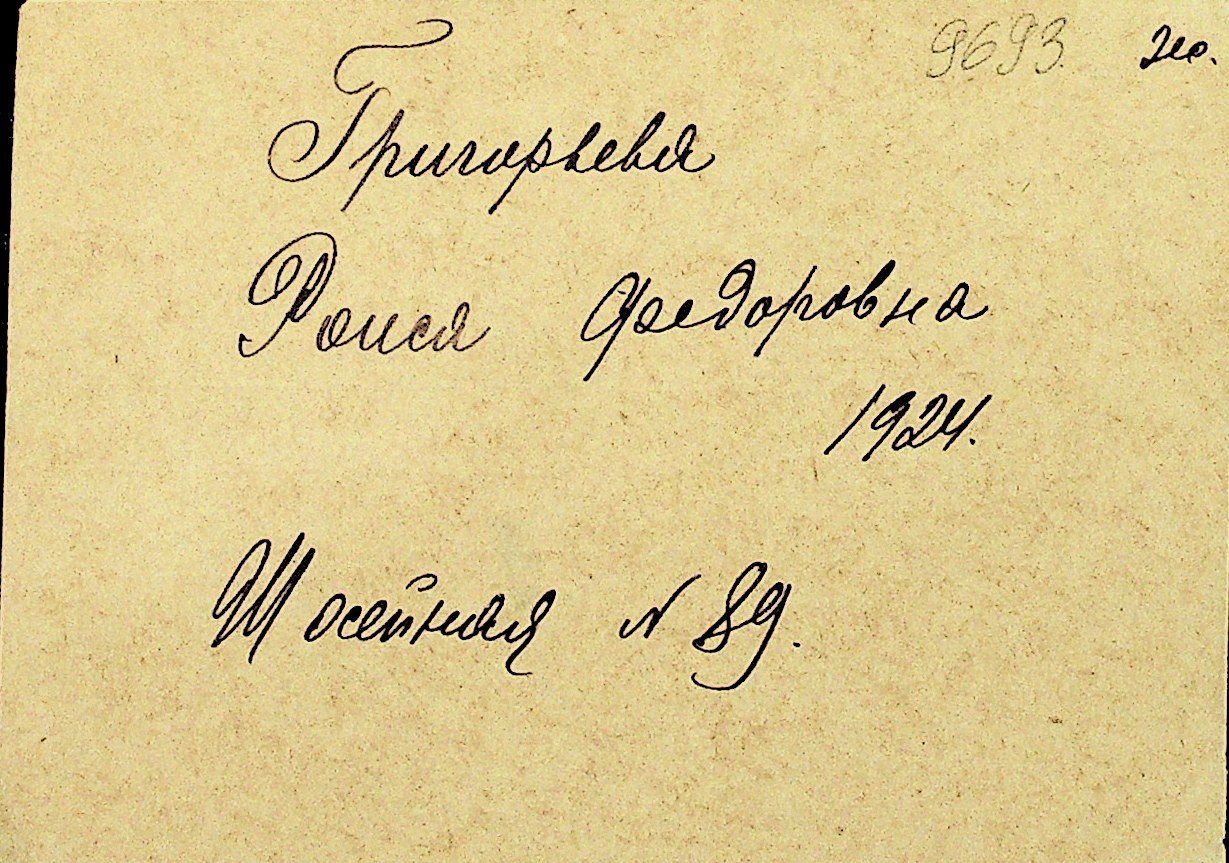 9693
Григорьева
Раиса Федоровна
1924.
Шосейная N 89.